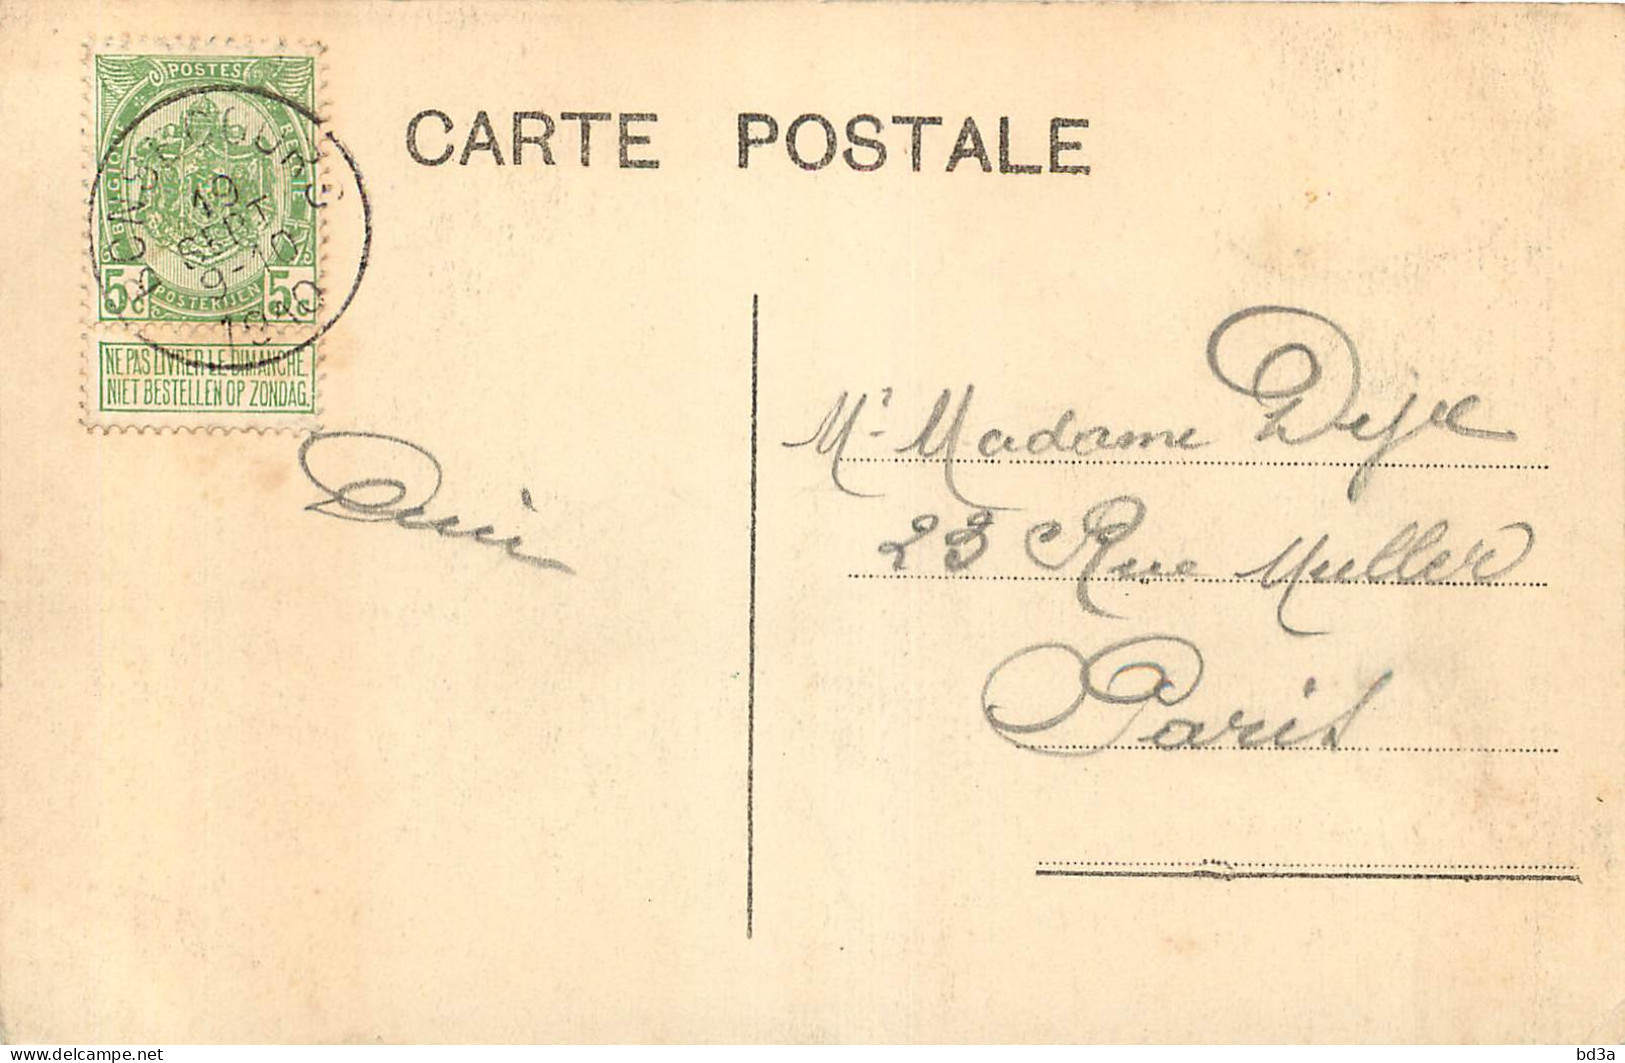 POSTES
BELGIQUE BELGIË
5c 5c
POSTERIJEN
NE PAS LIVRER LE DIMANCHE
NIET BESTELLEN OP ZONDAG.
19
SEPT
9-10
1910
CARTE POSTALE
Mr Madame
23 Rue Muller
Paris
delcampe.net
bd3a